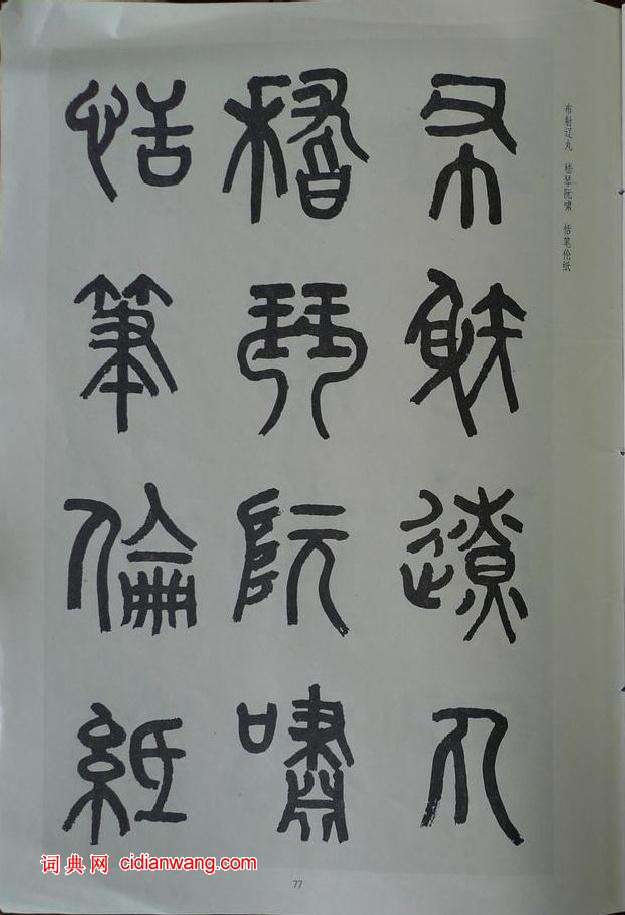 布射辽丸 嵇琴阮啸 恬笔伦纸
布射遼丸
嵇琴阮嘯
恬筆倫紙
词典网 cidianwang.com
77